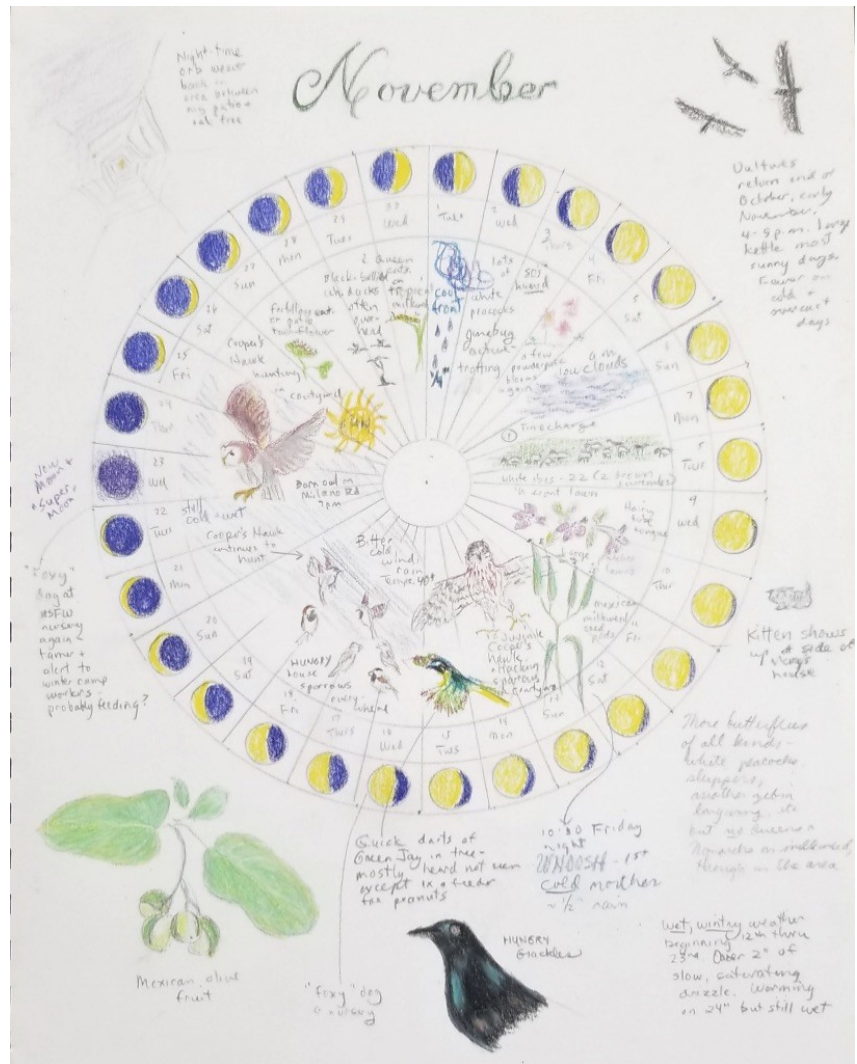 November
Night-time
orb weaver
back in
area between
my patio +
oak tree
Vultures
return end of
October, early
November,
4-5 p.m. Large
kettle most
sunny days.
Fewer on
cold +
overcast
days
1
Tues
2
Wed
3
Thurs
4
Fri
5
Sat
6
Sun
7
Mon
Tues
9
Wed
10
Thur
11
Fri
12
Sat
Sun
14
Mon
15
Tues
Wed
17
Thurs
18
Fri
19
Sat
20
Sun
21
Mon
22
Tues
23
Wed
24
Thur
25
Fri
26
Sat
27
Sun
28
Mon
29
Tues
Wed
cool
front
lots
of
white
peacocks
a few
powderpuff
blooms
again
a.m.
low clouds
white ibis - 22 (2 brown
in front lawn
Hairy
tube
tongue
Large
mexican
milkweed
seed
pods
Juvenile
Cooper's
hawk
attacking
sparrows
in courtyard
Bitter
cold
wind,
rain
Temps. 40°
HUNGRY
house
sparrows
every
where
Cooper's Hawk
continues to
hunt
still
cold + wet
Born owl on
Milano Rd
7pm
Cooper's
Hawk
hunting
in
courtyard
on patio
sunflower
Black-bellied
whs. ducks
often
over-
head
2 Queen
cats.
on
tropical
milkweed
New
Moon +
+ Super-
Moon
"Foxy"
dog at
nursery
again -
tamer +
alert to
winter camp
workers -
probably feeding?
Kitten shows
up at side of
house
More butterflies
of all kinds -
white peacocks
skippers,
another zebra
longwing, etc
but no Queens or
Monarchs on milkweed,
though in the area.
Quick darts of
Green Jay in tree -
mostly heard not seen
except in feeder
for peanuts
10:30 Friday
night
WHOOSH - 1st
cold norther
~ 1/2" rain
Mexican olive
fruit
"Foxy" dog
@ nursery
HUNGRY
Grackles
Wet, wintry weather
beginning 12th thru
23rd. Over 2" of
slow, saturating
drizzle. Warming
on 24th but still wet